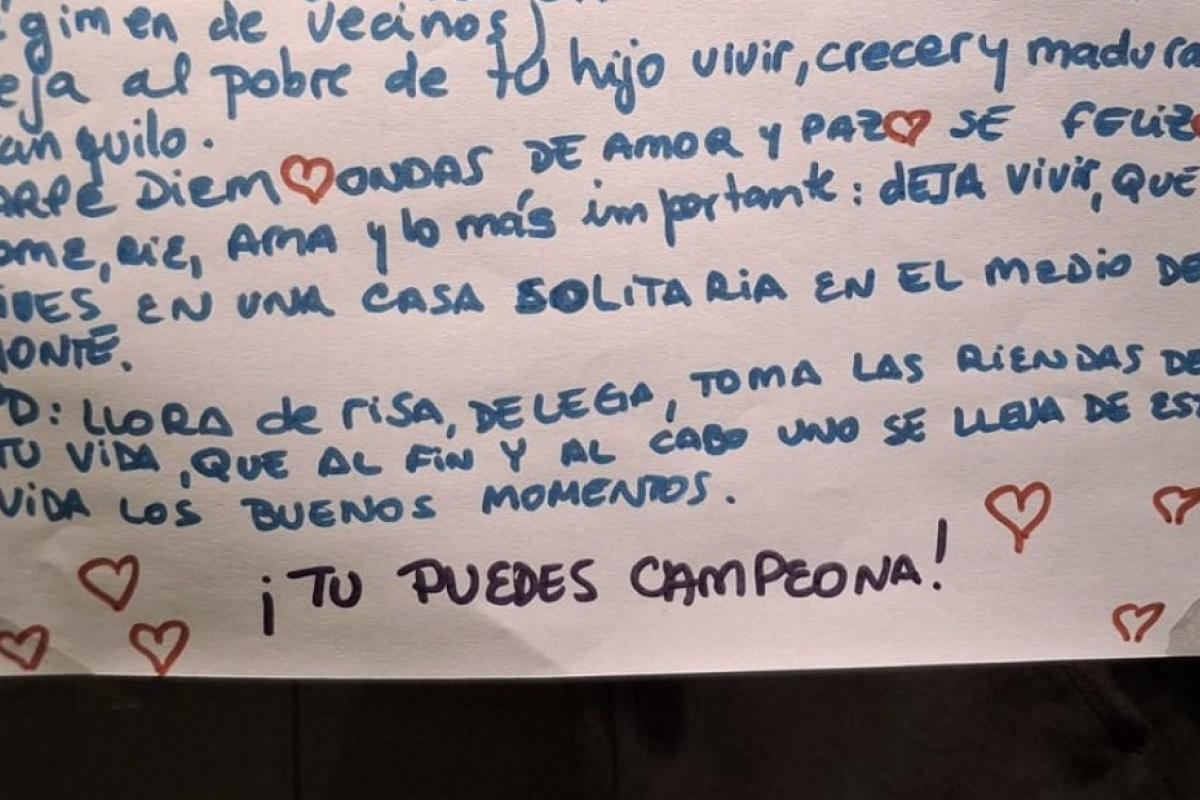 égimen de vecinos)
eja al pobre de tu hijo vivir, crecer y madura
anquilo.
ARPE DIEM ONDAS DE AMOR Y PAZ SE FELIZ
ome, RIE, AMA y lo más importante: dEJA vivir, QUE
IVES EN UNA CASA SOLITARIA EN EL MEDIO DE
MONTE.
PD: LLORA de risa, DELEGA, TOMA LAS RIENDAS DE
TU VIDA, QUE AL FIN Y AL CABO UNO SE LLEVA DE EST
VIDA LOS BUENOS MOMENTOS.
¡TU PUEDES CAMPEONA!